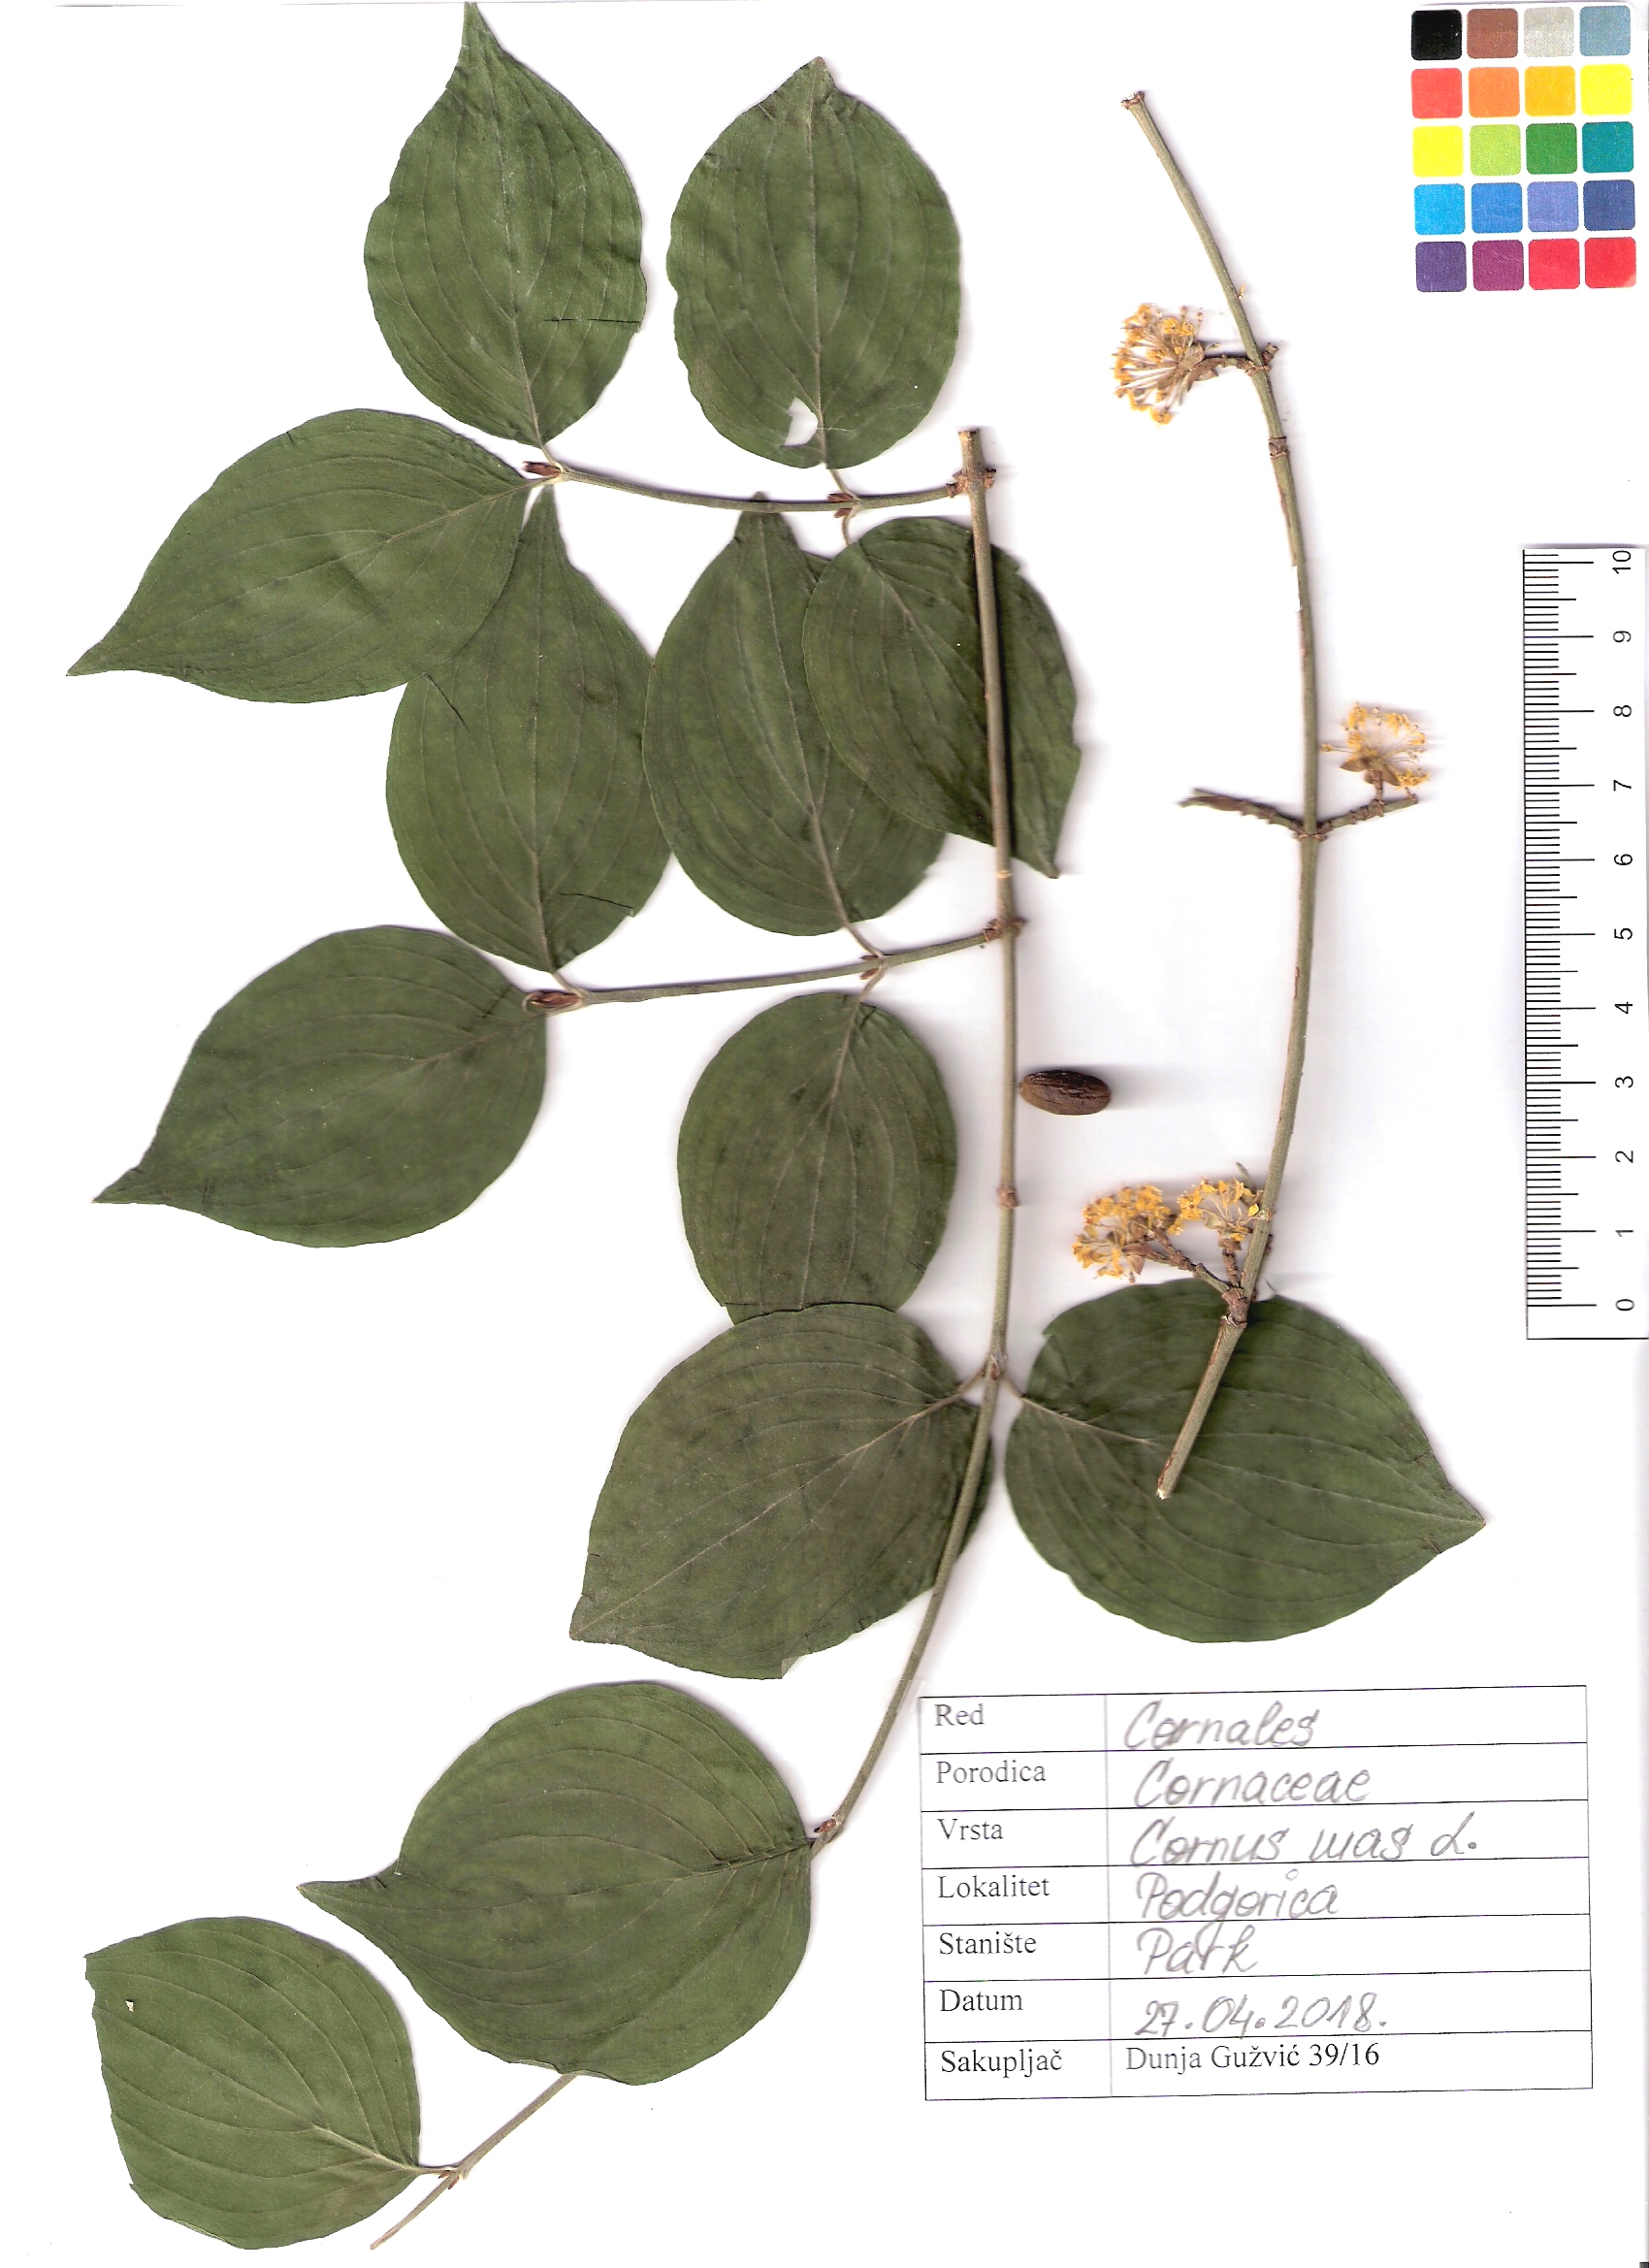 10
9
8
7
6
5
4
3
2
1
0
Red Cornales
Porodica Cornaceae
Vrsta Cornus mas L.
Lokalitet Podgorica
Stanište Park
Datum 27.04.2018.
Sakupljač Dunja Gužvić 39/16